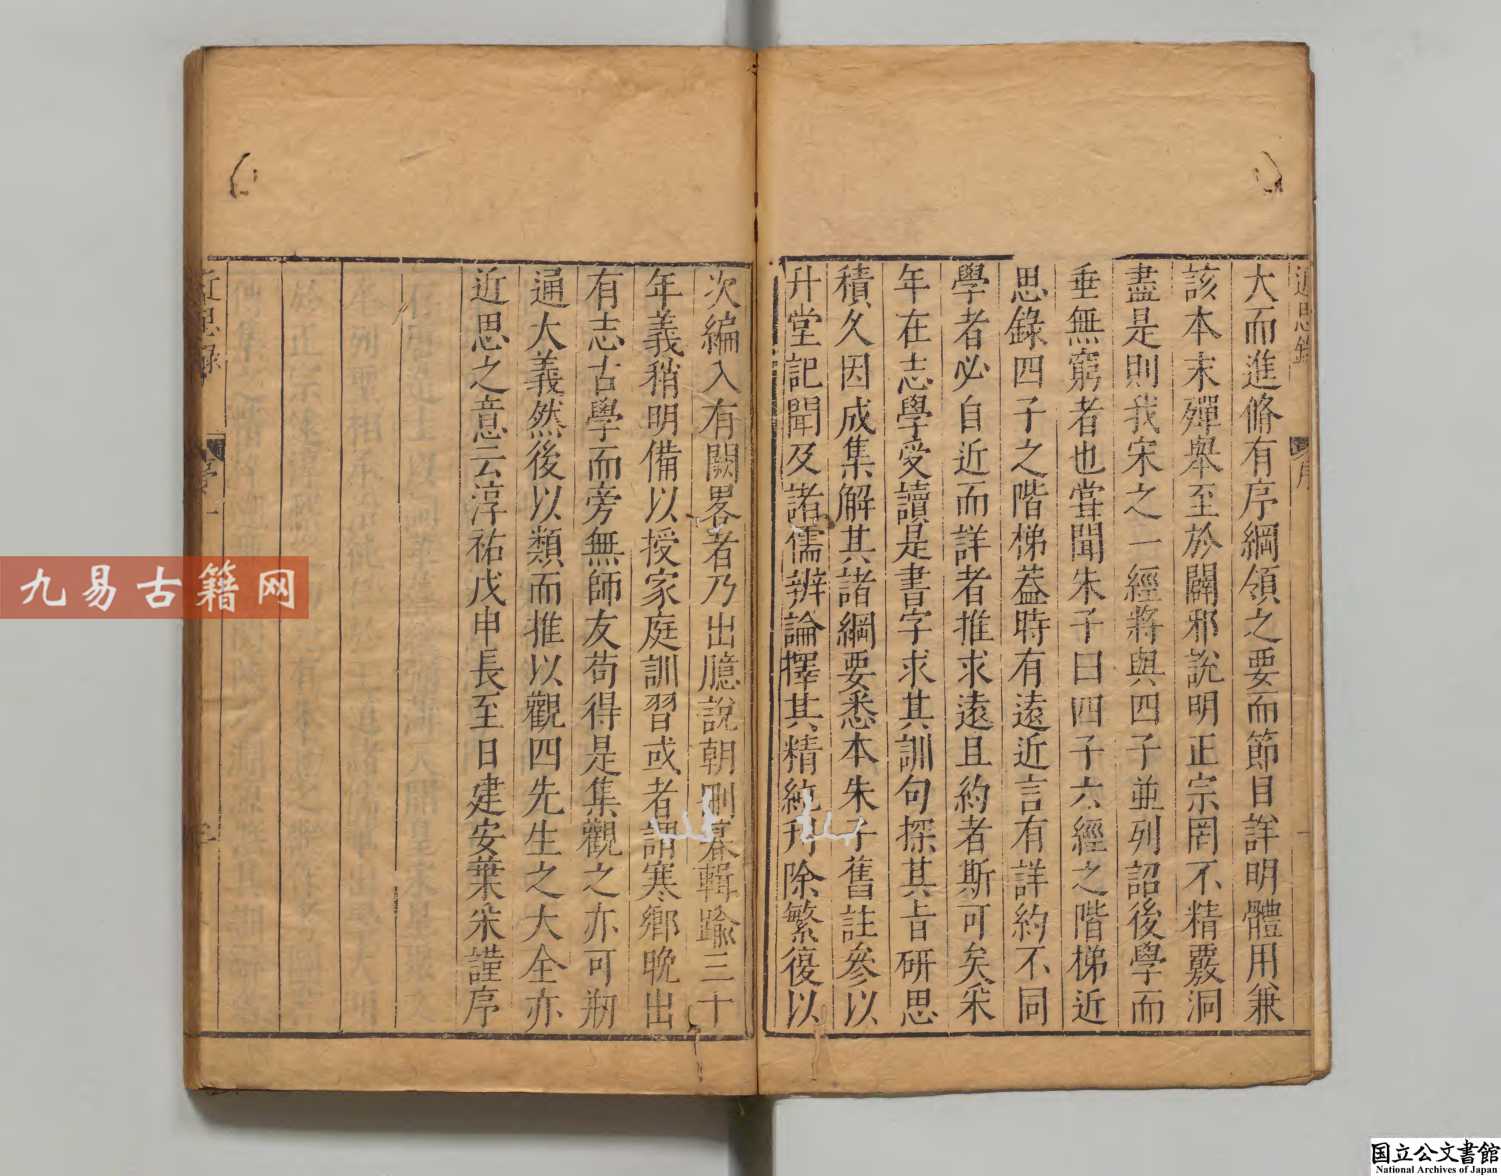 近思錄
序
大而進脩有序綱領之要而節目詳明體用兼
該本末殫舉至於闢邪說明正宗罔不精覈洞
盡是則我宋之一經將與四子並列詔後學而
垂無窮者也嘗聞朱子曰四子六經之階梯近
思錄四子之階梯葢時有遠近言有詳約不同
學者必自近而詳者推求遠且約者斯可矣采
年在志學受讀是書字求其訓句探其旨研思
積久因成集解其諸綱要悉本朱子舊註參以
升堂記聞及諸儒辨論擇其精純刋除繁復以
次編入有闕畧者乃出臆說朝刪暮輯踰三十
年義稍明備以授家庭訓習或者謂寒鄉晚出
有志古學而旁無師友苟得是集觀之亦可剏
通大義然後以類而推以觀四先生之大全亦
近思之意云淳祐戊申長至日建安葉采謹序
近思錄
九易古籍网
国立公文書館
National Archives of Japan